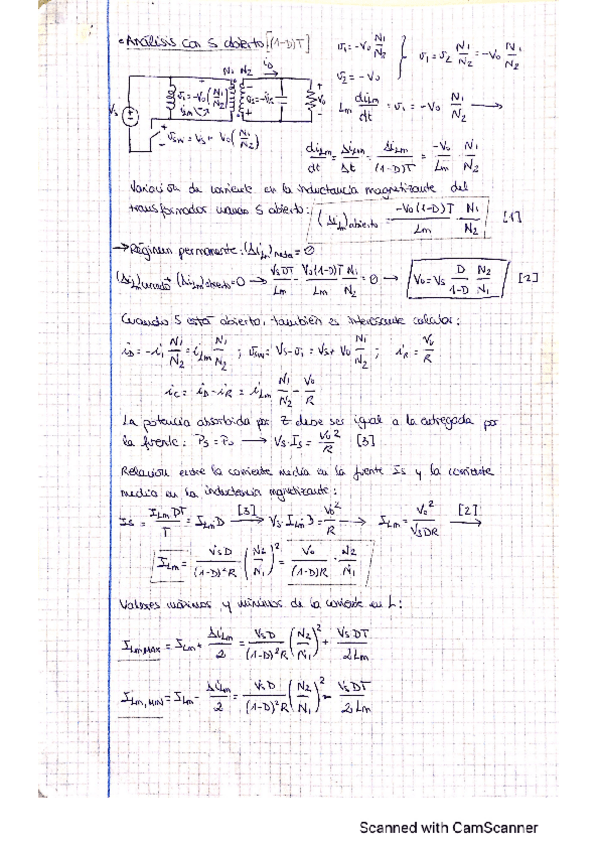 • Análisis con S abierto [(1-D)T]
v₁ = -V₀ N₁/N₂
v₂ = -V₀
v₁ = v₂ N₁/N₂ = -V₀ N₁/N₂
N₁ N₂ i_D
Vs v₁ = -V₀(N₁/N₂) v₂ = -V₀ V₀
v_sw = Vs + V₀(N₁/N₂)
Lm di_Lm/dt = v₁ = -V₀ N₁/N₂ →
di_Lm/dt = Δi_Lm/Δt = Δi_Lm/(1-D)T = -V₀/Lm · N₁/N₂
Variación de corriente en la inductancia magnetizante del
transformador cuando S abierto: (Δi_L)abierto = -V₀(1-D)T/Lm · N₁/N₂ [1]
→ Régimen permanente: (Δi_Lm)neta = 0
(Δi_Lm)cerrado + (Δi_Lm)abierto = 0 → VsDT/Lm - V₀(1-D)T/Lm N₁/N₂ = 0 → V₀ = Vs D/1-D N₂/N₁ [2]
Cuando S está abierto, también es interesante calcular:
i_D = -i₁ N₁/N₂ = i_Lm N₁/N₂ ; v_sw = Vs - v₁ = Vs + V₀ N₁/N₂ ; i_R = V₀/R
i_C = i_D - i_R = i_Lm N₁/N₂ - V₀/R
La potencia absorbida por Z debe ser igual a la entregada por
la fuente: Ps = P₀ → Vs·Is = V₀²/R [3]
Relación entre la corriente media en la fuente Is y la corriente
media en la inductancia magnetizante:
Is = I_Lm DT/T = I_Lm D [3]→ Vs·I_Lm D = V₀²/R → I_Lm = V₀²/VsDR [2]→
I_Lm = VsD/(1-D)²R (N₂/N₁)² = V₀/(1-D)R · N₂/N₁
Valores máximos y mínimos de la corriente en L:
I_Lm,MAX = I_Lm + Δi_Lm/2 = VsD/(1-D)²R (N₂/N₁)² + VsDT/2Lm
I_Lm,MIN = I_Lm - Δi_Lm/2 = VsD/(1-D)²R (N₂/N₁)² - VsDT/2Lm
Scanned with CamScanner